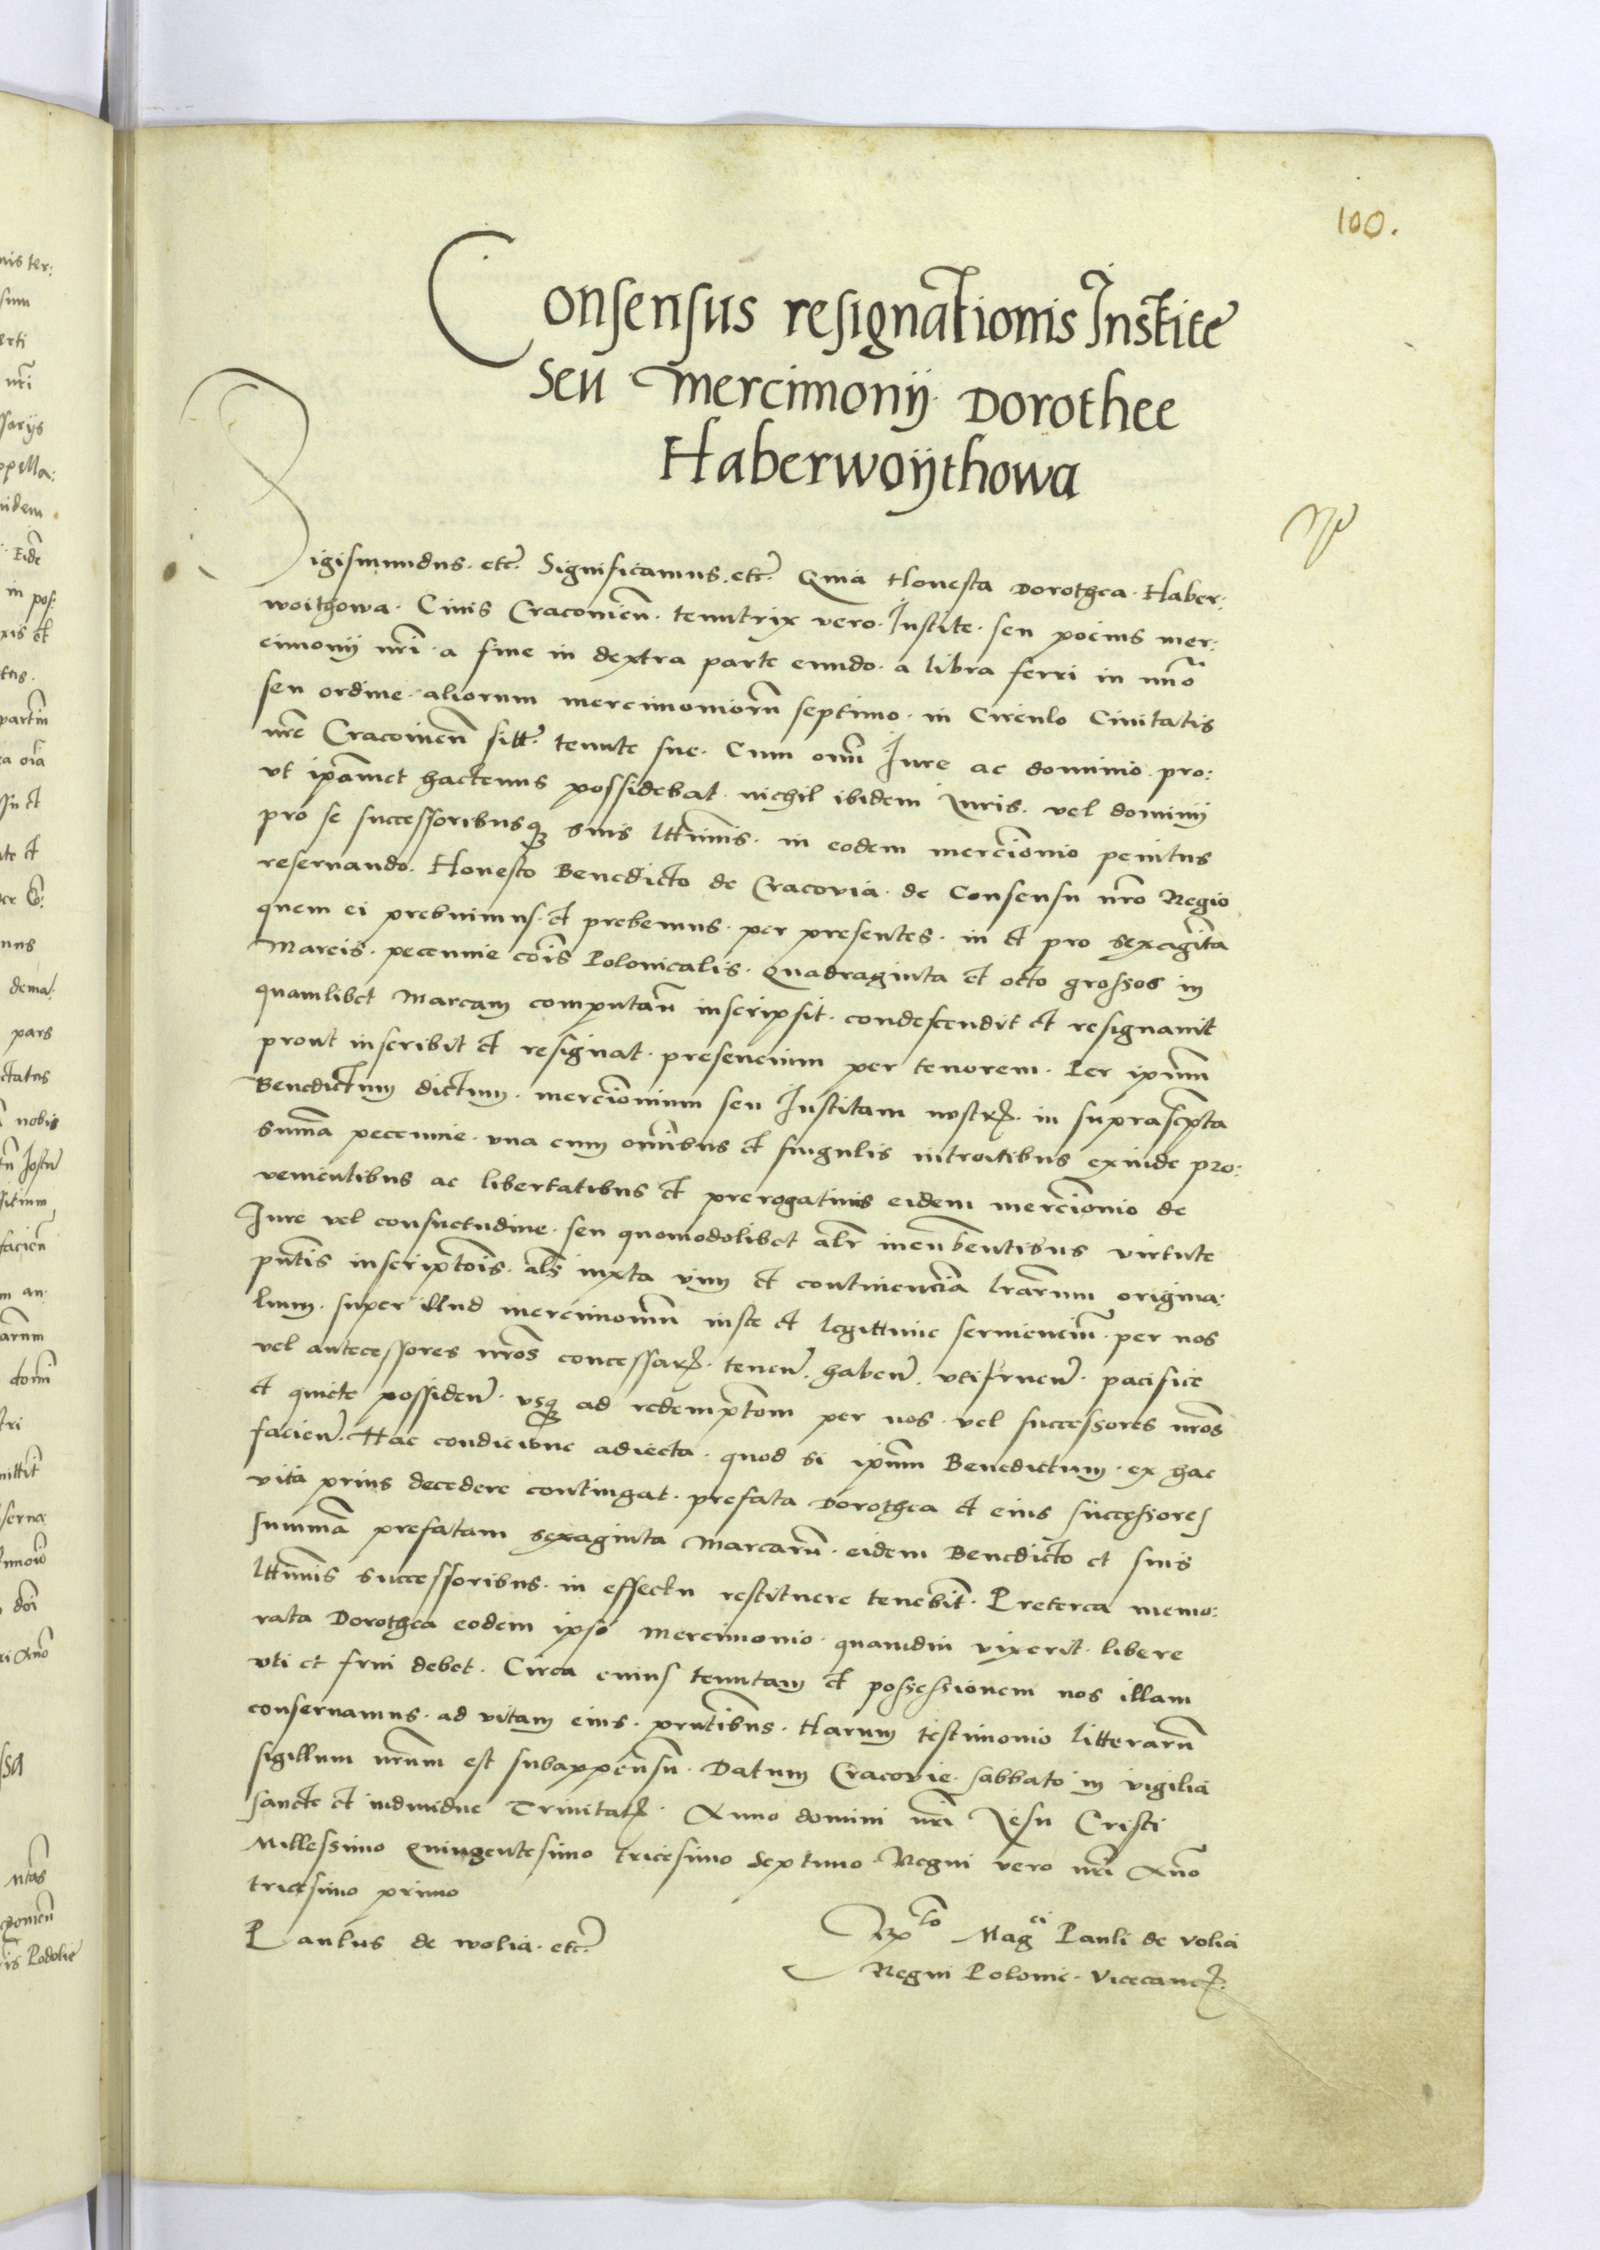 100.
Consensus resignationis Institę
seu Mercimonij Dorothee
Haberwoÿthowa
Sigismundus. etc̃. Significamus. etc̃. Quia Honesta Dorothea. Haber:
woithowa. Civis Cracovien̄. tenutrix vero. Institę. seu pocius mer:
cimonij nr̄i. a fine in dextra parte eundo. a libra ferri in nūo
seu ordine. aliorum mercimoniorū septimo. in Circulo Civitatis
nr̄e Cracovien̄ sitę. tenute sue. Cum om̄i Jure ac dominio. pro:
ut ip̄amet hactenus possidebat. nichil ibidem Juris. vel dominij
pro se successoribusq̨ suis lttīmis. in eodem mercīonio penitus
reservando. Honesto Benedicto de Cracovia. de Consensu nr̄o Regio
quem ei prebuimus. et prebemus. per presentes. in et pro sexagīnta
Marcis. pecunie cōis Polonicalis. Quadraginta et octo grossos in
quamlibet Marcam computan̄ inscripsit. condescendit et resignavit
prout inscribit et resignat. presencium per tenorem. Per ip̄um
Benedictum dictum. mercīonium seu Institam nostrā. in suprascr̄pta
sum̄a pecunie. una cum om̄ibus et singulis introitibus exinde pro:
venientibus ac libertatibus et prerogativis eidem mercīonio de
Jure vel consuetudine. seu quomodolibet alr̄ incūbentibus virtute
pn̄tis inscriptōis. als̄ iuxta vim et continencīa lr̄arum origina:
lium. super illud mercimoniū iuste et legittime serviencīū. per nos
vel antecessores nr̄os concessarꝝ. tenen̄. haben̄. utifruen̄. pacifice
et quiete possiden̄. usq̨ ad redemptōm per nos. vel successores nr̄os
facien̄. Hac condicione adiecta. quod si ip̄um Benedictum. ex hac
vita prius decedere contingat. prefata Dorothea et eius successores
summā prefatam sexaginta Marcarū. eidem Benedicto et suis
lttīmis successoribus. in effectu restituere tenebīt. Preterea memo:
rata Dorothea eodem ipso mercimonio. quamdiu vixerit. libere
uti et frui debet. Circa cuius tenutam et possessionem nos illam
conservamus. ad vitam eius. pn̄tibus. Harum testimonio litterarū
sigillum nr̄um est subappensū. Datum Cracovie. sabbato in vigilia
sancte et individue Trinitatꝭ. Anno domini nr̄i Jesu Cristi
Millessimo Quingentesimo tricesimo Septimo. Regni vero nr̄i Anō
tricesimo primo
Paulus de Wolia. etc̃
Rx̄to Magci Pauli de Volia
Regni Polonie. Vicecancꝭ.